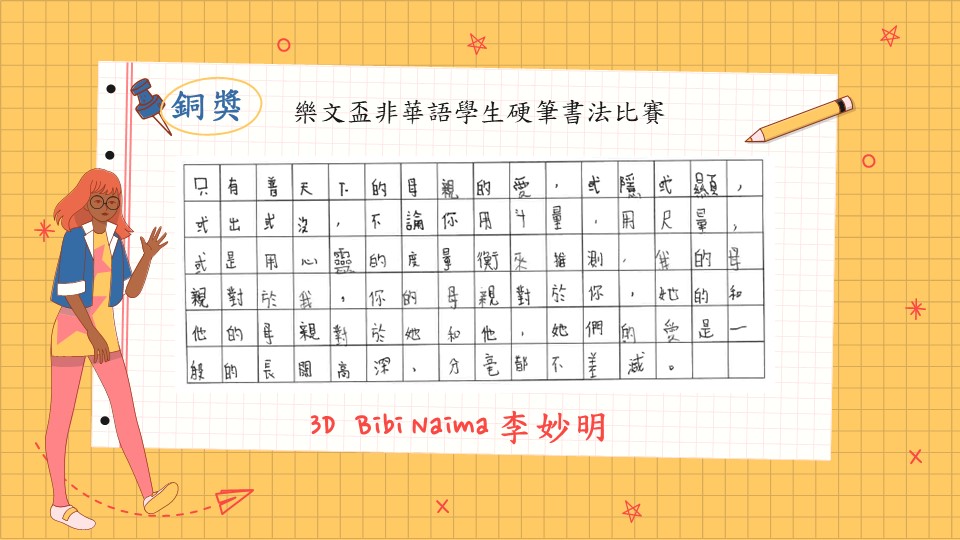 銅獎
樂文盃非華語學生硬筆書法比賽
只有普天下的母親的愛，或隱或顯，
或出或沒，不論你用斗量，用尺量，
或是用心靈的度量衡來推測，我的母
親對於我，你的母親對於你，她的和
他的母親對於她和他，她們的愛是一
般的長闊高深，分毫都不差減。
3D Bibi Naima 李妙明